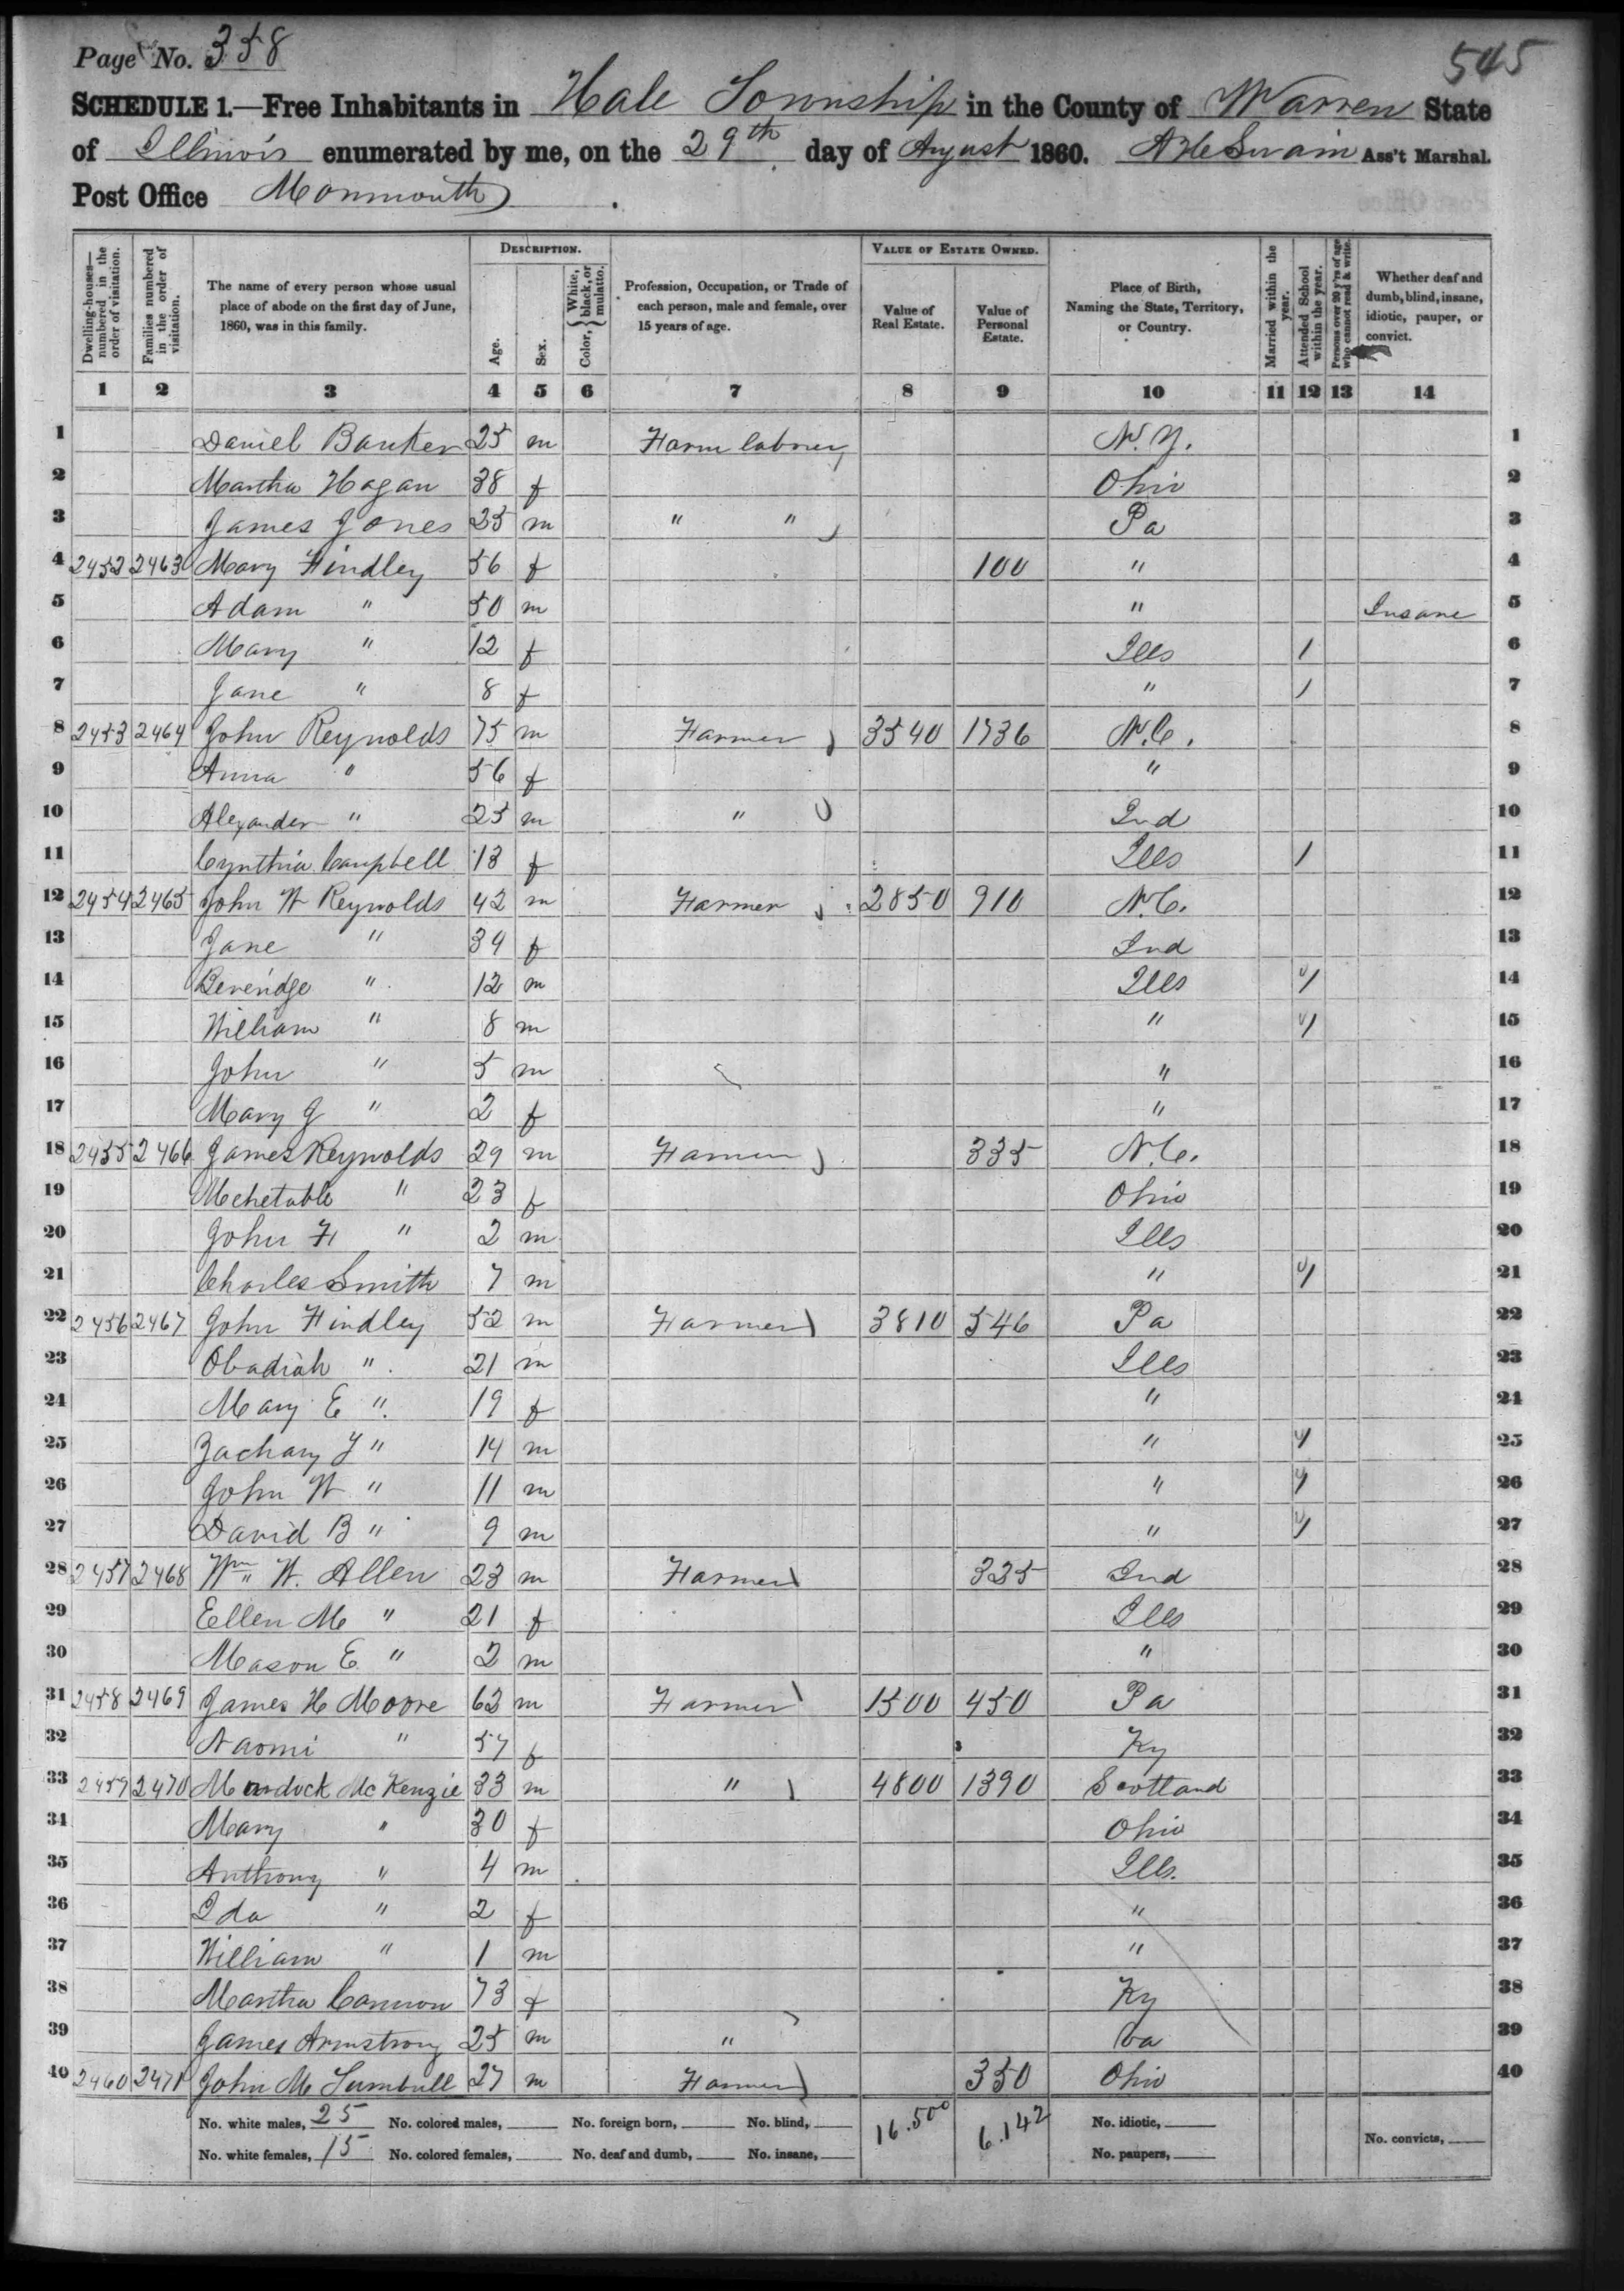 Page No. 358
545
SCHEDULE 1.—Free Inhabitants in Hale Township in the County of Warren State
of Illinois enumerated by me, on the 29th day of August 1860. Swain Ass't Marshal.
Post Office Monmouth
Dwelling-houses—numbered in the order of visitation.
Families numbered in the order of visitation.
The name of every person whose usual place of abode on the first day of June, 1860, was in this family.
DESCRIPTION.
Age.
Sex.
Color, { White, black, or mulatto.
Profession, Occupation, or Trade of each person, male and female, over 15 years of age.
VALUE OF ESTATE OWNED.
Value of Real Estate.
Value of Personal Estate.
Place of Birth, Naming the State, Territory, or Country.
Married within the year.
Attended School within the year.
Persons over 20 y'rs of age who cannot read & write.
Whether deaf and dumb, blind, insane, idiotic, pauper, or convict.
1 2 3 4 5 6 7 8 9 10 11 12 13 14
1 Daniel Banker 25 m Farm laborer N.Y. 1
2 Martha Hagan 38 f Ohio 2
3 James Jones 25 m " " Pa 3
4 2452 2463 Mary Findley 56 f 100 " 4
5 Adam " 50 m " Insane 5
6 Mary " 12 f Ills 1 6
7 Jane " 8 f " 1 7
8 2453 2464 John Reynolds 75 m Farmer 3540 1736 N.C. 8
9 Anna " 56 f " 9
10 Alexander " 25 m " Ind 10
11 Cynthia Campbell 13 f Ills 1 11
12 2454 2465 John W Reynolds 42 m Farmer 2850 910 N.C. 12
13 Jane " 39 f Ind 13
14 Beveridge " 12 m Ills 1 14
15 William " 8 m " 1 15
16 John " 5 m " 16
17 Mary J " 2 f " 17
18 2455 2466 James Reynolds 29 m Farmer 335 N.C. 18
19 Mehetable " 23 f Ohio 19
20 John F " 2 m Ills 20
21 Charles Smith 7 m " 1 21
22 2456 2467 John Findley 52 m Farmer 3810 546 Pa 22
23 Obadiah " 21 m Ills 23
24 Mary E " 19 f " 24
25 Zachary T " 14 m " 1 25
26 John W " 11 m " 1 26
27 David B " 9 m " 1 27
28 2457 2468 Wm W. Allen 23 m Farmer 325 Ind 28
29 Ellen M " 21 f Ills 29
30 Mason E " 2 m " 30
31 2458 2469 James H Moore 62 m Farmer 1500 450 Pa 31
32 Naomi " 57 f Ky 32
33 2459 2470 Murdock McKenzie 33 m " 4800 1390 Scotland 33
34 Mary " 30 f Ohio 34
35 Anthony " 4 m Ills. 35
36 Ida " 2 f " 36
37 William " 1 m " 37
38 Martha Cannon 73 f Ky 38
39 James Armstrong 25 m " Va 39
40 2460 2471 John M Turnbull 27 m Farmer 350 Ohio 40
No. white males, 25 No. colored males, No. foreign born, No. blind, 16.500 6.142 No. idiotic,
No. white females, 15 No. colored females, No. deaf and dumb, No. insane, No. paupers, No. convicts,